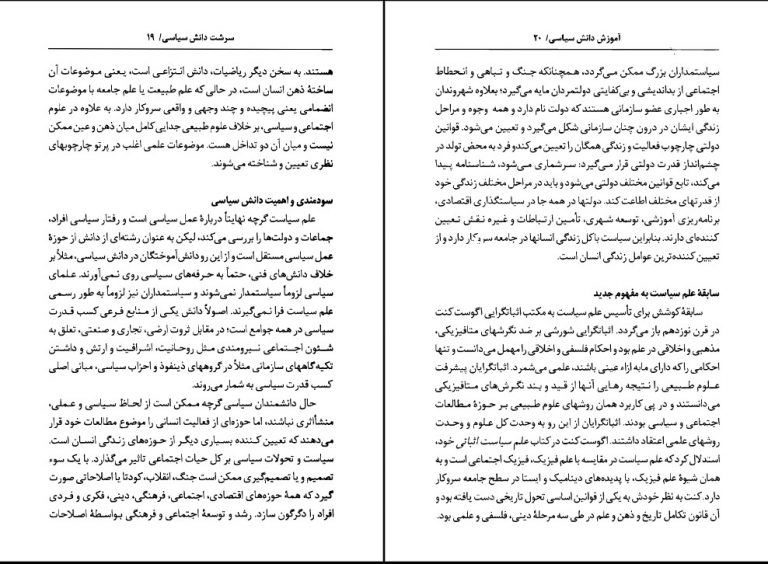 سرشت دانش سیاسی/ ۱۹
هستند. به سخن دیگر ریاضیات، دانش انتزاعی است، یعنی موضوعات آن
ساختهٔ ذهن انسان است، در حالی که علم طبیعت یا علم جامعه با موضوعات
انضمامی یعنی پیچیده و چند وجهی و واقعی سروکار دارد. به علاوه در علوم
اجتماعی و سیاسی، بر خلاف علوم طبیعی جدایی کامل میان ذهن و عین ممکن
نیست و میان آن دو تداخل هست. موضوعات علمی اغلب در پرتو چارچوبهای
نظری تعیین و شناخته می‌شوند.
سودمندی و اهمیت دانش سیاسی
علم سیاست گرچه نهایتاً دربارهٔ عمل سیاسی است و رفتار سیاسی افراد،
جماعات و دولت‌ها را بررسی می‌کند، لیکن به عنوان رشته‌ای از دانش از حوزهٔ
عمل سیاسی مستقل است و از این رو دانش‌آموختگان در دانش سیاسی، مثلاً بر
خلاف دانش‌های فنی، حتماً به حرفه‌های سیاسی روی نمی‌آورند. علمای
سیاسی لزوماً سیاستمدار نمی‌شوند و سیاستمداران نیز لزوماً به طور رسمی
علم سیاست فرا نمی‌گیرند. اصولاً دانش یکی از منابع فرعی کسب قدرت
سیاسی در همه جوامع است؛ در مقابل ثروت ارضی، تجاری و صنعتی، تعلق به
شئون اجتماعی نیرومندی مثل روحانیت، اشرافیت و ارتش و داشتن
تکیه‌گاههای سازمانی مثلاً در گروههای ذینفوذ و احزاب سیاسی، مبانی اصلی
کسب قدرت سیاسی به شمار می‌روند.
حال دانشمندان سیاسی گرچه ممکن است از لحاظ سیاسی و عملی،
منشأاثری نباشند، اما حوزه‌ای از فعالیت انسانی را موضوع مطالعات خود قرار
می‌دهند که تعیین کننده بسیاری دیگر از حوزه‌های زندگی انسان است.
سیاست و تحولات سیاسی بر کل حیات اجتماعی تاثیر می‌گذارد. با یک سوء
تصمیم و یا تصمیم‌گیری ممکن است جنگ، انقلاب، کودتا یا اصلاحاتی صورت
گیرد که همهٔ حوزه‌های اقتصادی، اجتماعی، فرهنگی، دینی، فکری و فردی
افراد را دگرگون سازد. رشد و توسعهٔ اجتماعی و فرهنگی بواسطهٔ اصلاحات
آموزش دانش سیاسی/ ۲۰
سیاستمداران بزرگ ممکن می‌گردد، همچنانکه جنگ و تباهی و انحطاط
اجتماعی از بداندیشی و بی‌کفایتی دولتمردان مایه می‌گیرد؛ بعلاوه شهروندان
به طور اجباری عضو سازمانی هستند که دولت نام دارد و همه وجوه و مراحل
زندگی ایشان در درون چنان سازمانی شکل می‌گیرد و تعیین می‌شود. قوانین
دولتی چارچوب فعالیت و زندگی همگان را تعیین می‌کند و فرد به محض تولد در
چشم‌انداز قدرت دولتی قرار می‌گیرد: سرشماری می‌شود، شناسنامه پیدا
می‌کند، تابع قوانین مختلف دولتی می‌شود و باید در مراحل مختلف زندگی خود
از قدرتهای مختلف اطاعت کند. دولتها در همه جا در سیاستگذاری اقتصادی،
برنامه‌ریزی آموزشی، توسعه شهری، تأمین ارتباطات و غیره نقش تعیین
کننده‌ای دارند. بنابراین سیاست با کل زندگی انسانها در جامعه سروکار دارد و از
تعیین کننده‌ترین عوامل زندگی انسان است.
سابقهٔ علم سیاست به مفهوم جدید
سابقهٔ کوشش برای تأسیس علم سیاست به مکتب اثباتگرایی اگوست کنت
در قرن نوزدهم باز می‌گردد. اثباتگرایی شورشی بر ضد نگرشهای متافیزیکی،
مذهبی و اخلاقی در علم بود و احکام فلسفی و اخلاقی را مهمل می‌دانست و تنها
احکامی را که دارای مابه ازاء عینی باشند، علمی می‌شمرد. اثباتگرایان پیشرفت
علوم طبیعی را نتیجه رهایی آنها از قید و بند نگرش‌های متافیزیکی
می‌دانستند و در پی کاربرد همان روشهای علوم طبیعی بر حوزهٔ مطالعات
اجتماعی و سیاسی بودند. اثباتگرایان از این رو به وحدت کل علوم و وحدت
روشهای علمی اعتقاد داشتند. اگوست کنت در کتاب علم سیاست اثباتی خود،
استدلال کرد که علم سیاست در مقایسه با علم فیزیک، فیزیک اجتماعی است و به
همان شیوهٔ علم فیزیک، با پدیده‌های دینامیک و ایستا در سطح جامعه سروکار
دارد. کنت به نظر خودش به یکی از قوانین اساسی تحول تاریخی دست یافته بود و
آن قانون تکامل تاریخ و ذهن و علم در طی سه مرحلهٔ دینی، فلسفی و علمی بود.